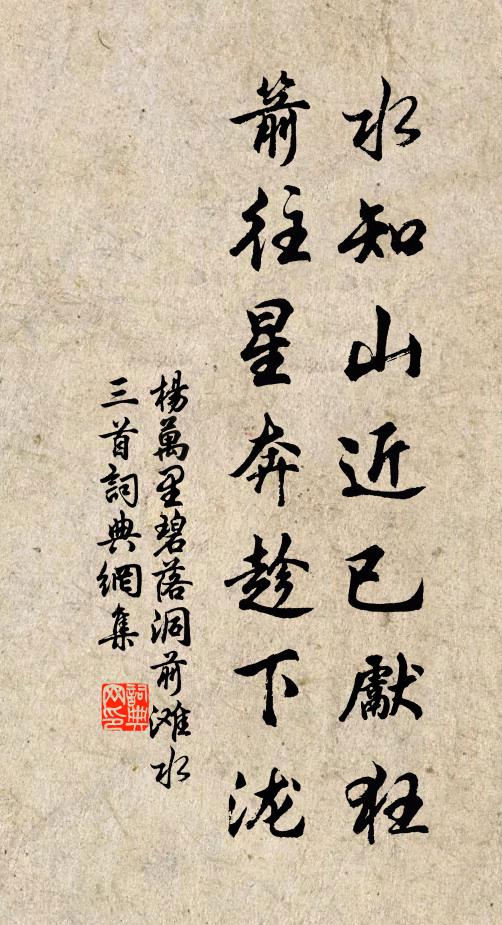 水知山近已獻狂
箭往星奔趁下泷
楊萬里碧落洞前滩水
三首詞典網集
詞典
网印